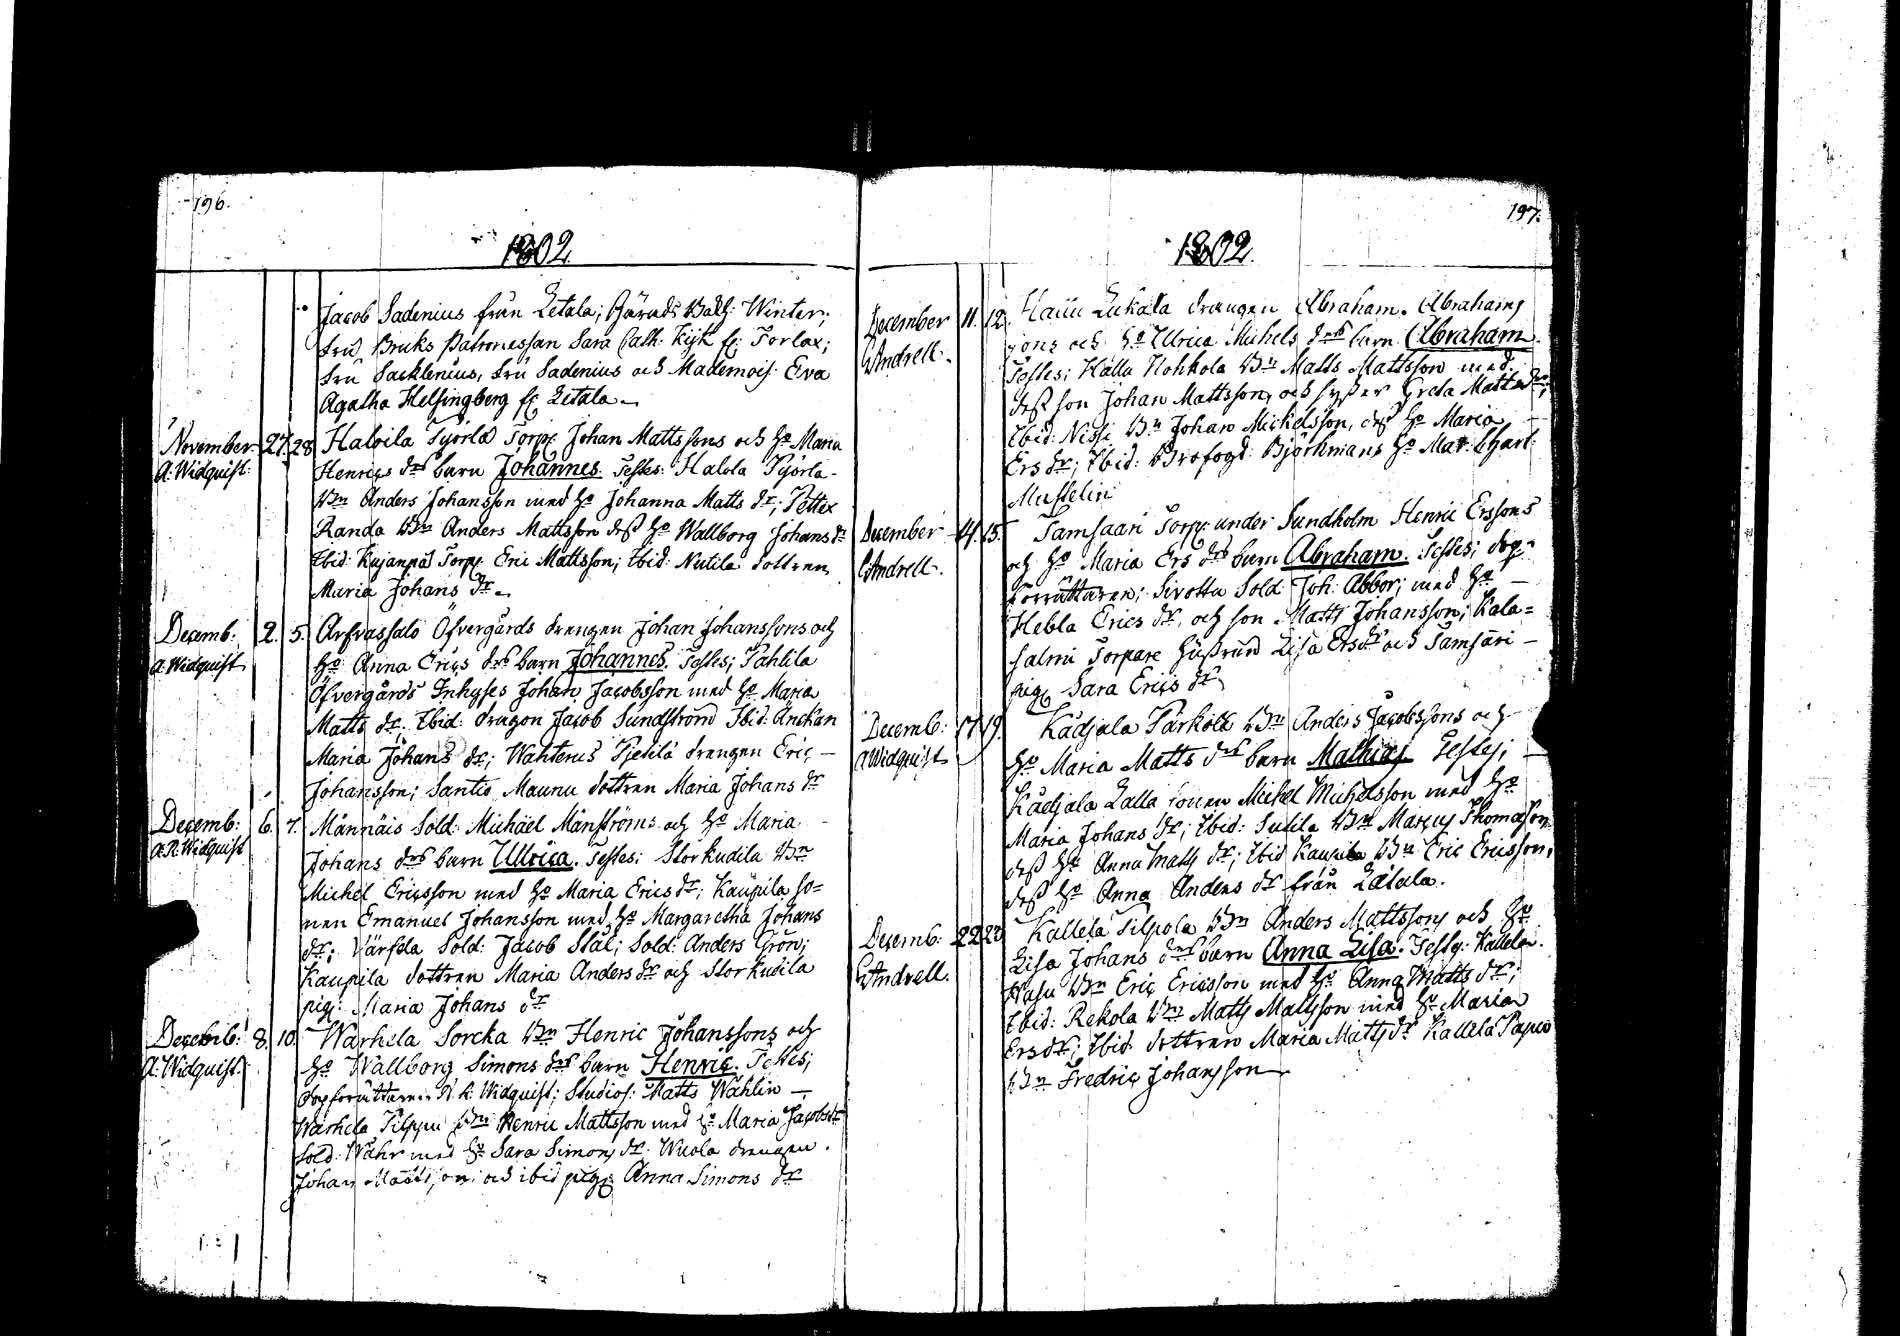 196.
1802
Jacob Sadenius från Letala; Härads Bokh: Winter;
Fru Bruks Patronessan Sara Cath: Kijk fr: Torlax;
Fru Sacklenius, Fru Sadenius och Mademois: Eva
Agatha Helsingberg fr: Letala.
November 27. 28 Haloila Tjorla Torp: Johan Mattssons och H:o Maria
A: Widquist: Henrics drs barn Johannes. Testes: Halola Tjorla
Bn Anders Johansson med H:o Johanna Matts dr; Pettex
Randa Bn Anders Mattsson dess H:o Wallborg Johans dr
Ibid: Kujanpää Torp: Eric Mattsson; Ibid: Nutila dottren
Maria Johans dr.
Decemb: 2. 5. Arfvassalo Öfvergårds drengen Johan Johanssons och
A: Widquist H:o Anna Erics drs barn Johannes. Testes; Tahtila
Öfvergårds Inhyses Johan Jacobsson med H:o Maria
Matts dr; Ibid: dragon Jacob Sundström Ibid: Änckan
Maria Johans dr; Wahterus Tjetilä drengen Eric
Johansson; Santio Maunu dottren Maria Johans dr
Decemb: 6. 7. Männäis Sold: Michäel Månströms och H:o Maria
A: R: Widquist Johans drs barn Ulrica. Testes: Storkudila Bn
Michel Ericsson med H:o Maria Erics dr; Kaupila so=
nen Emanuel Johansson med H:o Margaretha Johans
dr; Värfola Sold: Jacob Stål; Sold: Anders Grön;
Kaupila dottren Maria Anders dr och Storkudila
pig: Maria Johans dr
Decemb: 8. 10. Warhela Sorcka Bn Henric Johanssons och
A: Widquist. H:o Wallborg Simons drs barn Henric. Testes;
Dopförrättaren A. R: Widquist; Studios: Matts Wåhlin
Warhela Pilppu Bn Henric Mattsson med H:o Maria Jacobsdr
Sold: Währ med H:o Sara Simons dr. Wuola drengen
Johan Mattsson; och ibid pig: Anna Simons dr
197.
1802.
December 11. 12. Haiiu Lukala drengen Abraham Abrahams
G Andrell. sons och H:o Ulrica Michels drs barn Abraham.
Testes; Hallu Hohkola Bn Matts Mattsson med
dess son Johan Mattsson, och syster Greta Matts dr;
Ibid: Nissi Bn Johan Michelsson, dess H:o Maria
Ers dr; Ibid: Brofogd: Björkmans H:o Mar: Charl:
Musselin
December 14. 15. Tamsaari Torp: under Sundholm Henric Erssons
G Andrell. och H:o Maria Ers drs barn Abraham. Testes; dop
förrättaren; Sirotta Sold: Joh: Abbor; med H:o
Hebla Erics dr, och son Matts Johansson; Kala=
salmi Torpare Hustrun Lisa Ersdr och Tamsari
pig: Sara Erics dr
Decemb: 17. 19. Kädjala Parkola Bn Anders Jacobssons och
A Widquist H:o Maria Matts drs barn Mathias Testes;
Kädjala Lalla sonen Michel Michelsson med H:o
Maria Johans dr; Ibid: Sutila Bn Marcus Thomasson
dess H:o Anna Matts dr; Ibid Kaupila Bn Eric Ericsson,
dess H:o Anna Anders dr från Lätala.
Decemb: 22 23 Kallela Silpola Bn Anders Mattssons och H:o
G Andrell. Lisa Johans drs barn Anna Lisa. Testes: Kallela
Wasu Bn Eric Ericsson med H:o Anna Matts dr;
Ibid: Rekola Bn Matts Mattsson med H:o Maria
Ersdr; Ibid dottren Maria Matts dr Kallela Papco
Bn Fredric Johansson